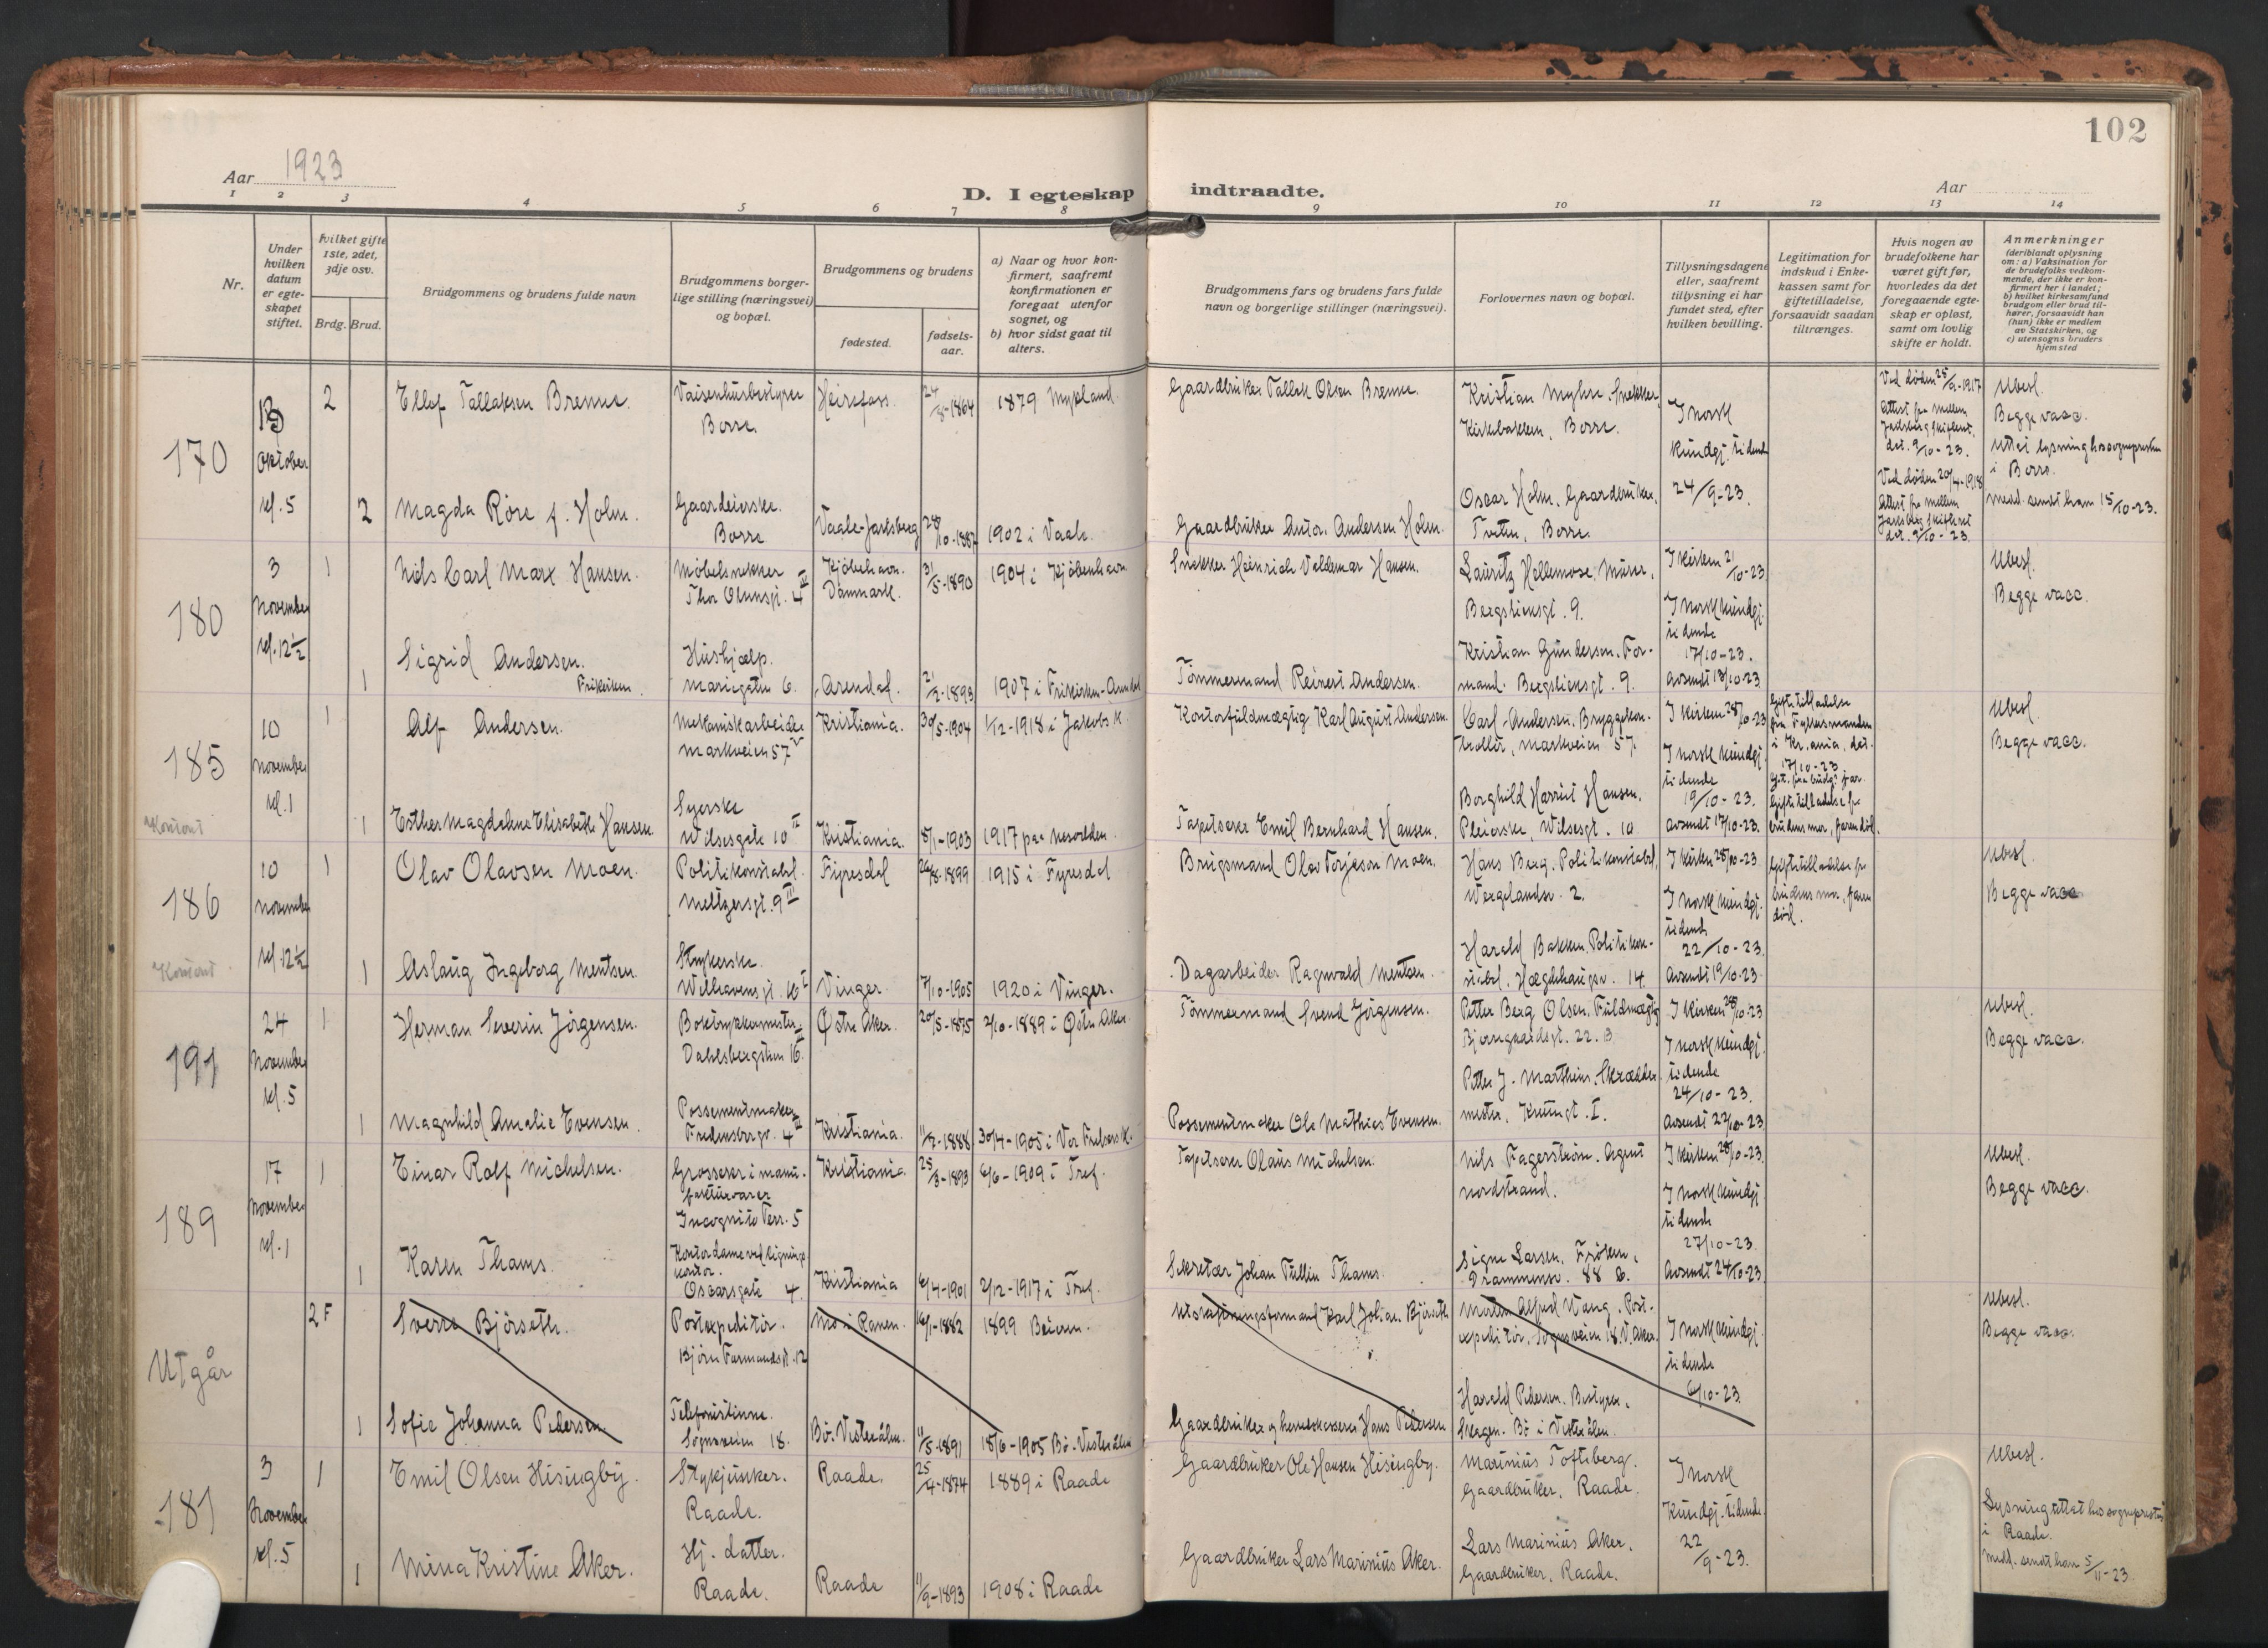 102
Aar 1923
D. I egteskap indtraadte.
Aar
1 2 3 4 5 6 7 8 9 10 11 12 13 14
Nr.
Under hvilken datum er egteskapet stiftet.
hvilket gifte 1ste, 2det, 3dje osv.
Brdg. Brud.
Brudgommens og brudens fulde navn
Brudgommens borgerlige stilling (næringsvei) og bopæl.
Brudgommens og brudens
fødested.
fødselsaar.
a) Naar og hvor konfirmert, saafremt konfirmationen er foregaat utenfor sognet, og
b) hvor sidst gaat til alters.
Brudgommens fars og brudens fars fulde navn og borgerlige stillinger (næringsvei).
Forlovernes navn og bopæl.
Tillysningsdagene eller, saafremt tillysning ei har fundet sted, efter hvilken bevilling.
Legitimation for indskud i Enkekassen samt for giftetilladelse, forsaavidt saadan tiltrænges.
Hvis nogen av brudefolkene har været gift før, hvorledes da det foregaaende egteskap er opløst, samt om lovlig skifte er holdt.
Anmerkninger (deriblandt oplysning om: a) Vaksination for de brudefolks vedkommende, der ikke er konfirmert her i landet; b) hvilket kirkesamfund brudgom eller brud tilhører, forsaavidt han (hun) ikke er medlem av Statskirken, og c) utensogns bruders hjemsted
170
Oktober
kl. 5
2
Ellef Tallaksen Brenne.
Vaisenhusbestyrer
Borre.
Heirefoss
24/8-1864
1879 Mykland.
Gaardbruker Tallak Olsen Brenne.
Kristian Myhre. Snekker,
Kirkebakken, Borre.
I norsk
kundgj. tidende
24/9-23.
Ved døden 25/9-1917
Attest fra mellem
Jarlsberg skifteret,
dat. 9/10-23.
Ubesl.
Begge vacc.
i Borre.
2
Magda Röre f. Holm.
Gaardeierske.
Borre
Vaale-Jarlsberg
1902 i Vaale.
Gaardbruker Anton Andersen Holm.
Oscar Holm, Gaardbruker,
Tveten, Borre.
Ved døden 20/4-1918
Attest fra mellem
Jarlsberg skifteret
dat. 9/10-23.
medd. sendt ham 15/10-23.
180
3
November
kl. 12½
1
Nils Carl Marx Hansen.
Möbelsnekker
Thor Olsensgt. 4
Kjöbehavn.
Danmark.
31/5-1890
1904 i Kjöbenhavn
Snekker Heinrich Valdemar Hansen.
Lauritz Hellemose, Murer,
Bergsliensgt. 9.
I kirken 21/10-23
I norsk kundgj.
tidende
17/10-23.
Avsendt 13/10-23
Ubesl.
Begge vacc.
1
Sigrid Andersen.
Frikirken.
Hushjælp.
Mariegaten 6.
Arendal.
21/2-1893
1907 i Frikirken-Arendal
Tömmermand Reinert Andersen.
Kristian Gundersen. Formand. Bergsliensgt. 9.
185
10
November
kl. 1
Kontant
1
Alf Andersen.
Mekaniskarbeider
Markveien 57
Kristiania.
30/5-1904
1/12-1918 i Jakobs K.
Kontorfuldmægtig Karl August Andersen.
Carl Andersen. Bryggekontrollör, Markveien 57.
I kirken 28/10-23
I norsk kundgj.
tidende
19/10-23.
Avsendt 17/10-23.
Giftetilladelse
fra Fylkesmanden
i Kr.ania, dat.
17/10-23
Giftetilladelse fra
brudens mor, faren död.
Ubesl.
Begge vacc.
1
Esther Magdalene Elisabeth Hansen.
Syerske
Wilsesgate 10
Kristiania.
8/1-1903
1917 paa Nesodden.
Tapetserer Emil Bernhard Hansen.
Borghild Harriet Hansen,
Pleierske, Wilsesgt. 10
186
10
November
kl. 12½
Kontant
1
Olav Olavsen Moen.
Politikonstabel.
Meltzersgt. 9
Fyresdal
26/8-1899
1915 i Fyresdal
Brugsmand Olav Torjeson Moen.
Hans Berg. Politikonstabel,
Wergelandsv. 2.
I kirken 28/10-23
I norsk kundgj.
tidende
22/10-23.
Avsendt 19/10-23
Giftetilladelse fra
brudens mor, faren
död.
Ubesl.
Begge vacc
1
Aslaug Ingeborg Mentsen.
Strykerske.
Welhavensgt. 16
Vinger.
7/10-1905
1920 i Vinger.
Dagarbeider Ragnvald Mentsen.
Harald Bakken. Politikonstabel. Hægdehaugsv. 14.
191
24
November
kl. 5
1
Herman Severin Jörgensen.
Boktrykkermester.
Dahlsbergstien 16
Østre Aker.
20/5-1875
2/10-1889 i Østre Aker.
Tömmermand Svend Jörgensen.
Petter Berg Olsen. Fuldmægtig
Bjerregaardsgt. 22. B.
Petter J. Marthins, Skræddermester, Kruusgt. I.
I kirken 28/10-23
I norsk kundgj.
tidende
24/10-23.
Avsendt 22/10-23
Ubesl.
Begge vacc.
1
Magnhild Amalie Evensen.
Possementmaker
Fredensborgv. 4
Kristiania.
11/2-1888
30/4-1905 i Vor Frelsers K.
Possementmaker Ole Mathias Evensen.
189
17
November
kl. 1
1
Einar Rolf Michelsen.
Grosserer i manufakturvarer
Incognito Terr. 5
Kristiania.
25/3-1893
6/6-1909 i Tref.
Tapetserer Olaus Michelsen.
Nils Fagerström. Agent
Nordstrand.
I kirken 28/10-23.
I norsk kundgj.
tidende
27/10-23.
Avsendt 24/10-23
Ubesl.
Begge vacc.
1
Karen Thams.
Kontordame ved ligningskontor.
Oscarsgate 4.
Kristiania
6/4-1901
2/12-1917 i Tref.
Sekretær Johan Tullin Thams.
Signe Larsen. Fröken,
Drammensv. 88 B.
Utgår
2F
Sverre Björseth.
Postexpeditör.
Björn Farmandsgt. 12
Mo i Ranen.
16/1-1882
1899 Beieren.
Utskiftningsformand Karl Johan Björseth
Martin Alfred Wang. Postexpeditör, Sognsveien 18. V. Aker.
I norsk kundgj.
tidende
6/10-23.
Ubesl.
Begge vacc.
1
Sofie Johanna Pedersen.
Telefonistinne.
Sognsveien 18.
Bö. Vesterålen.
11/5-1891
18/6-1905 Bö. Vesterålen
Gaardbruker og herredskasserer Hans Pedersen
Harald Pedersen. Bestyrer,
Skagen. Bö i Vesterålen.
181
3
November
kl. 5
1
Emil Olsen Hisingby.
Stykjunker.
Raade.
Raade.
25/4-1874
1889 i Raade
Gaardbruker Ole Hansen Hisingby.
Marinius Tofteberg.
Gaardbruker, Raade.
I norsk
Kundgj. tidende
22/9-23.
Ubesl.
Lysning tettet hos sognepresten
i Raade.
medd. sendt ham 5/11-23.
1
Mina Kristine Aker.
Hj. datter.
Raade.
Raade
11/9-1893
1908 i Raade
Gaardbruker Lars Marinius Aker.
Lars Marinius Aker.
Gaardbruker, Raade.